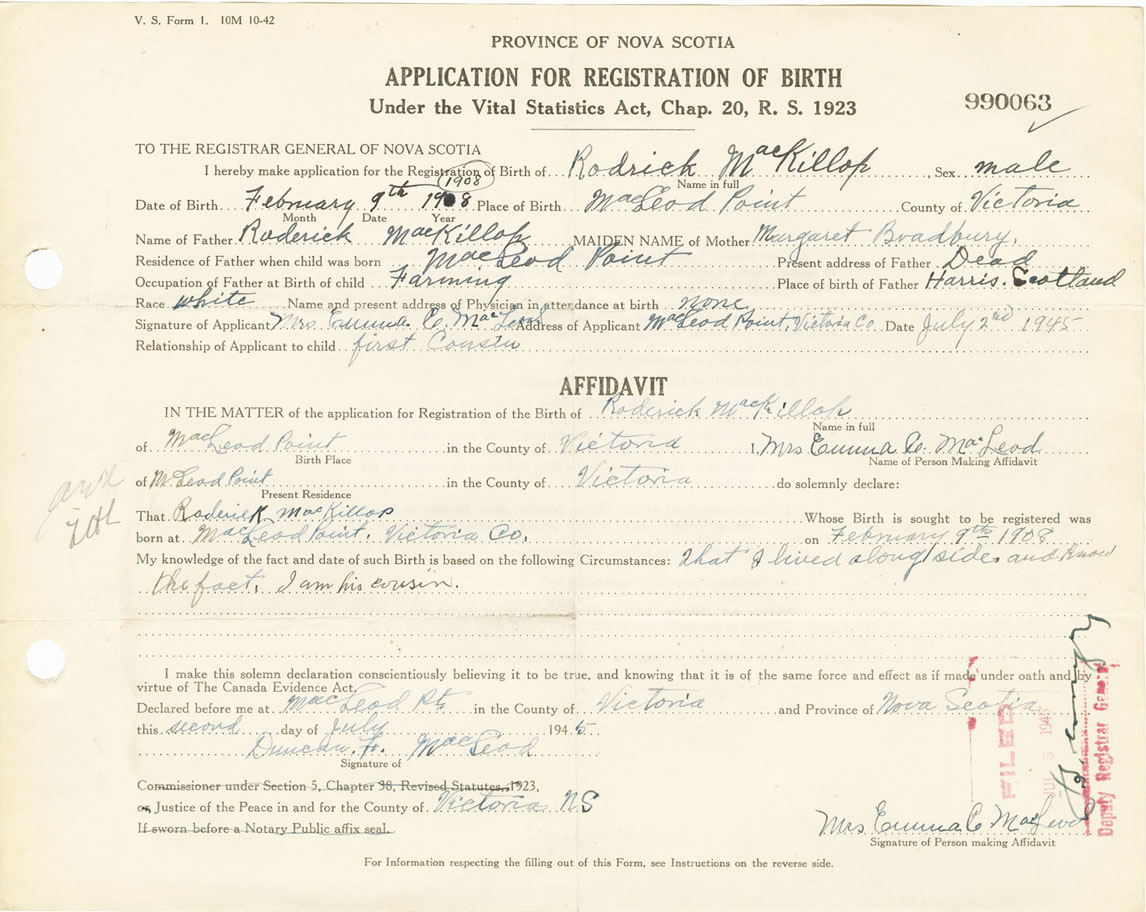 V. S. Form 1. 10M 10-42
PROVINCE OF NOVA SCOTIA
APPLICATION FOR REGISTRATION OF BIRTH
Under the Vital Statistics Act, Chap. 20, R. S. 1923
990063
TO THE REGISTRAR GENERAL OF NOVA SCOTIA
I hereby make application for the Registration of Birth of Rodrick MacKillop, Sex male
1908
Name in full
Date of Birth February 9th 1908 Place of Birth MacLeod Point County of Victoria
Month Date Year
Name of Father Roderick MacKillop MAIDEN NAME of Mother Margaret Bradbury.
Residence of Father when child was born MacLeod Point Present address of Father Dead
Occupation of Father at Birth of child Farming Place of birth of Father Harris. Scotland
Race white Name and present address of Physician in attendance at birth none
Signature of Applicant Mrs. Emma C. MacLeod Address of Applicant MacLeod Point, Victoria Co. Date July 2nd 1945
Relationship of Applicant to child first Cousin
AFFIDAVIT
IN THE MATTER of the application for Registration of the Birth of Roderick MacKillop
Name in full
of MacLeod Point in the County of Victoria I, Mrs Emma C. MacLeod
Birth Place Name of Person Making Affidavit
of McLeod Point in the County of Victoria do solemnly declare:
Present Residence
That Roderick MacKillop Whose Birth is sought to be registered was
born at MacLeod Point, Victoria Co. on February 9th 1908
My knowledge of the fact and date of such Birth is based on the following Circumstances: that I lived along sides and know
the fact, I am his cousin.
I make this solemn declaration conscientiously believing it to be true, and knowing that it is of the same force and effect as if made under oath and by
virtue of The Canada Evidence Act.
Declared before me at MacLeod Pt. in the County of Victoria and Province of Nova Scotia
this second day of July 1945
Duncan H. MacLeod
Signature of
Commissioner under Section 5, Chapter 38, Revised Statutes, 1923,
or Justice of the Peace in and for the County of Victoria NS
If sworn before a Notary Public affix seal.
FILED
JUL 5 1945
Deputy Registrar General
Mrs Emma C MacLeod
Signature of Person making Affidavit
For Information respecting the filling out of this Form, see Instructions on the reverse side.